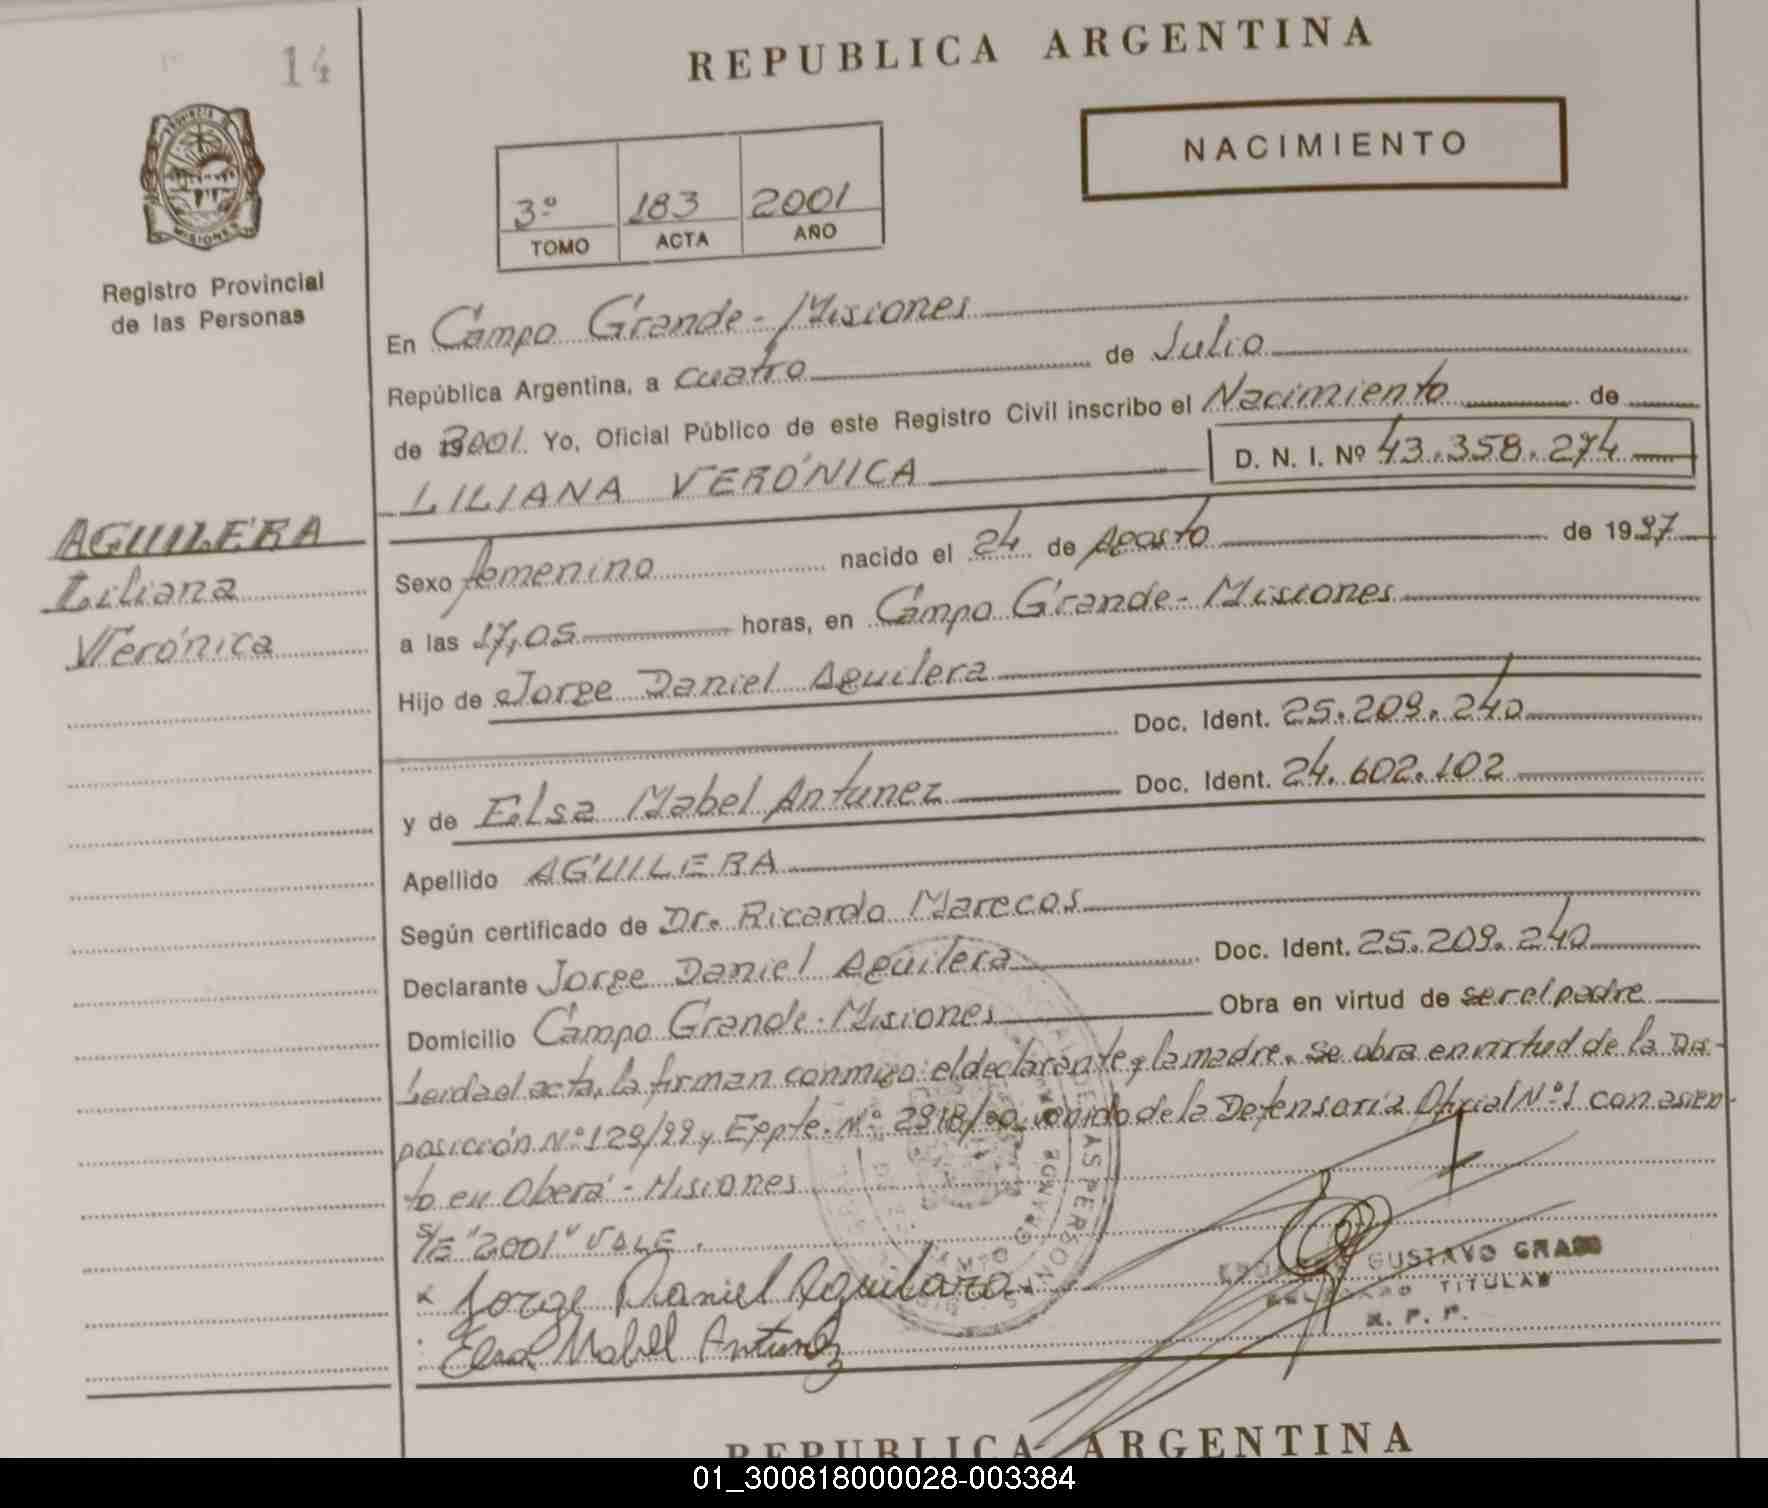 14
REPUBLICA ARGENTINA
PROVINCIA DE
MISIONES
Registro Provincial
de las Personas
NACIMIENTO
3º 183 2001
TOMO ACTA AÑO
En Campo Grande - Misiones
República Argentina, a cuatro de Julio
de 2001. Yo, Oficial Público de este Registro Civil inscribo el Nacimiento de
LILIANA VERÓNICA D. N. I. Nº 43.358.274
AGUILERA
Liliana
Verónica
Sexo femenino nacido el 24 de Agosto de 1997
a las 17,05 horas, en Campo Grande - Misiones
Hijo de Jorge Daniel Aguilera
Doc. Ident. 25.209.240
y de Elsa Mabel Antunez Doc. Ident. 24.602.102
Apellido AGUILERA
Según certificado de Dr. Ricardo Marecos
Declarante Jorge Daniel Aguilera Doc. Ident. 25.209.240
Domicilio Campo Grande - Misiones Obra en virtud de ser el padre
Leida el acta, la firman conmigo: el declarante y la madre. Se obra en virtud de la Dis-
posicción Nº 129/99 y Eppte. Nº 2918/00 venido de la Defensoría Oficial Nº 1 con asien-
to en Oberá - Misiones
S/E "2001" VALE.
x Jorge Daniel Aguilera
Elsa Mabel Antunez
GUSTAVO
TITULAR
R. P. P.
REPUBLICA ARGENTINA
01_300818000028-003384